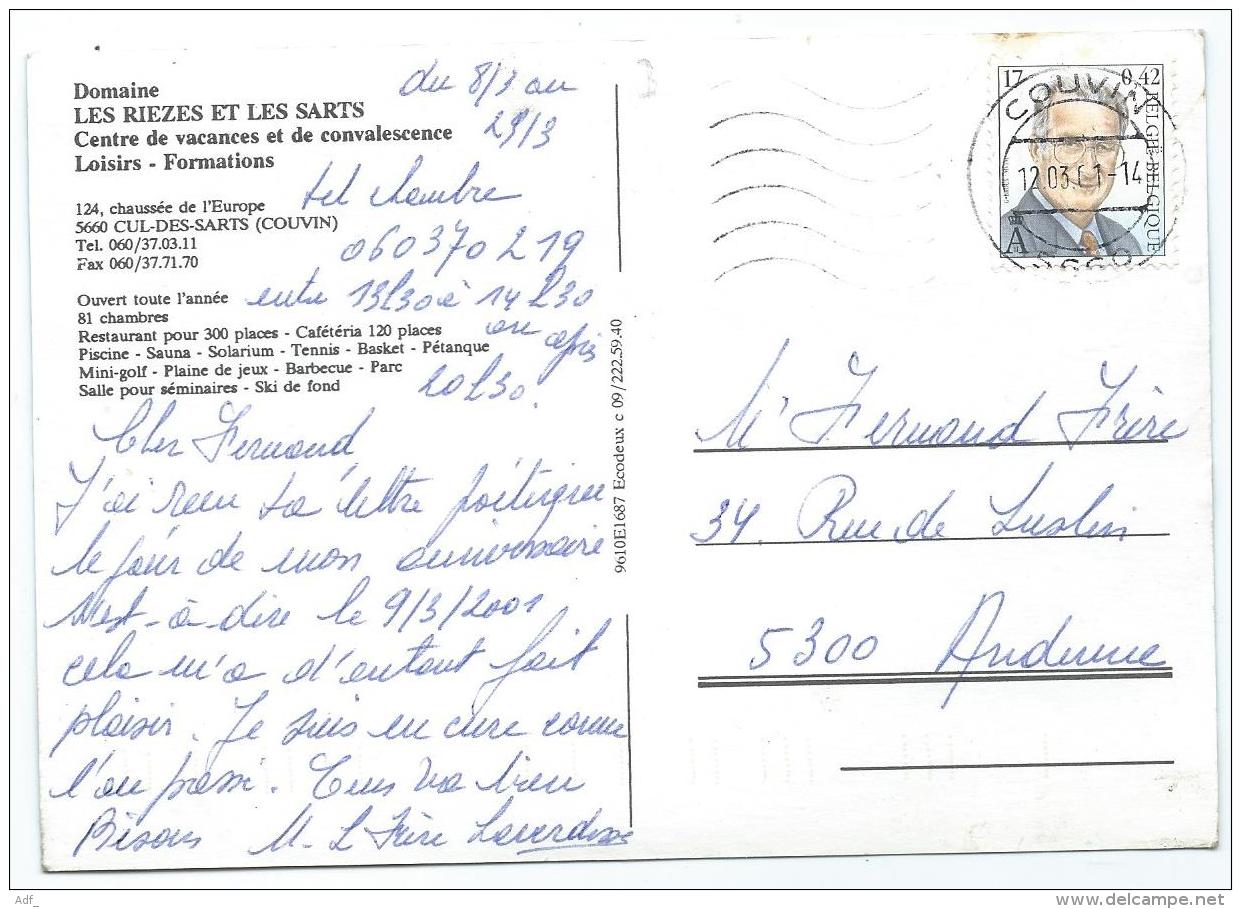 Domaine
LES RIEZES ET LES SARTS
Centre de vacances et de convalescence
Loisirs - Formations
124, chaussée de l'Europe
5660 CUL-DES-SARTS (COUVIN)
Tel. 060/37.03.11
Fax 060/37.71.70
Ouvert toute l'année
81 chambres
Restaurant pour 300 places - Cafétéria 120 places
Piscine - Sauna - Solarium - Tennis - Basket - Pétanque
Mini-golf - Plaine de jeux - Barbecue - Parc
Salle pour séminaires - Ski de fond
du 8/3 au
29/3
tel chambre
060370219
entre 13h30 à 14h30
ou après
20h30.
Cher Fernand
J'ai recu ta lettre
le jour de mon anniversaire
c'est-à-dire le 9/3/2001
cela m'a d'autant fait
plaisir. Je suis en cure comme
l'an passé. Tous va bien
Bisous M-L Frère
9610E1687 Ecodeux c 09/222.59.40
17 0,42
BELGIË-BELGIQUE
A
COUVIN
12.03.01-14
5660
Mr Fernand Frère
34. Rue de
5300 Andenne
Adf_
www.delcampe.net